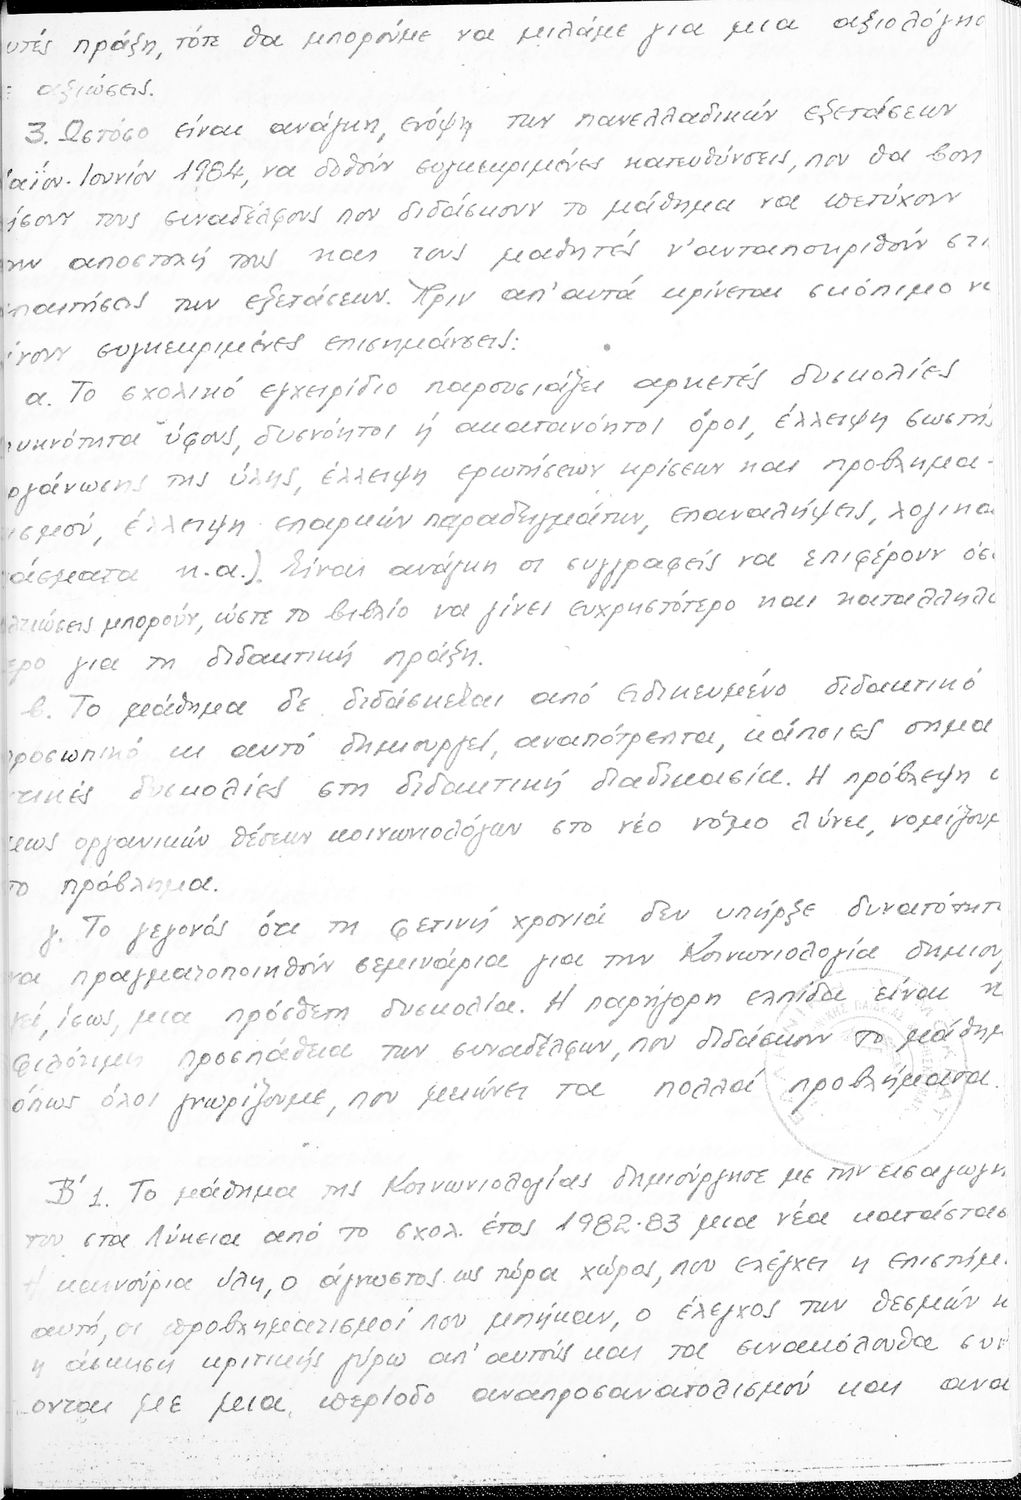 υτές πράξη, τότε θα μπορούμε να μιλάμε για μια αξιολόγησ
ε αξιώσεις.
3. Ωστόσο είναι ανάγκη, ενόψη των πανελλαδικών εξετάσεων
αΐου-Ιουνίου 1984, να δοθούν συγκεκριμένες κατευθύνσεις, που θα βοη
ήσουν τους συναδέλφους που διδάσκουν το μάθημα να πετύχουν
ην αποστολή τους και τους μαθητές ν' ανταποκριθούν στι
παιτήσεις των εξετάσεων. Πριν απ' αυτά κρίνεται σκόπιμο να
ίνουν συγκεκριμένες επισημάνσεις:
α. Το σχολικό εγχειρίδιο παρουσιάζει αρκετές δυσκολίες
υκνότητα ύφους, δυσνόητοι ή ακατανόητοι όροι, έλλειψη σωστής
ργάνωσης της ύλης, έλλειψη ερωτήσεων κρίσεων και προβλημα-
ισμού, έλλειψη επαρκών παραδειγμάτων, επαναλήψεις, λογικά
άσματα κ.α.). Είναι ανάγκη οι συγγραφείς να επιφέρουν όσε
λτιώσεις μπορούν, ώστε το βιβλίο να γίνει ευχρηστότερο και καταλληλό
ερο για τη διδακτική πράξη.
β. Το μάθημα δε διδάσκεται από ειδικευμένο διδακτικό
προσωπικό κι αυτό δημιουργεί, αναπότρεπτα, κάποιες σημα
τικές δυσκολίες στη διδακτική διαδικασία. Η πρόβλεψη
μως οργανικών θέσεων κοινωνιολόγων στο νέο νόμο λύνει, νομίζουμ
το πρόβλημα.
γ. Το γεγονός ότι τη φετινή χρονιά δεν υπήρξε δυνατότητα
να πραγματοποιηθούν σεμινάρια για την Κοινωνιολογία δημιου
γεί, ίσως, μια πρόσθετη δυσκολία. Η παρήγορη ελπίδα είναι η
φιλότιμη προσπάθεια των συναδέλφων, που διδάσκουν το μάθημ
όπως όλοι γνωρίζουμε, που μειώνει τα πολλά προβλήματα.
Β' 1. Το μάθημα της Κοινωνιολογίας δημιούργησε με την εισαγωγή
του στα Λύκεια από το σχολ. έτος 1982-83 μια νέα κατάστασ
Η καινούρια ύλη, ο άγνωστος ως τώρα χώρος, που ελέγχει η επιστήμ
αυτή, οι προβληματισμοί που μπήκαν, ο έλεγχος των θεσμών κ
η άσκηση κριτικής γύρω απ' αυτούς και τα συνακόλουθα συν
ονται με μια περίοδο αναπροσανατολισμού και ανα